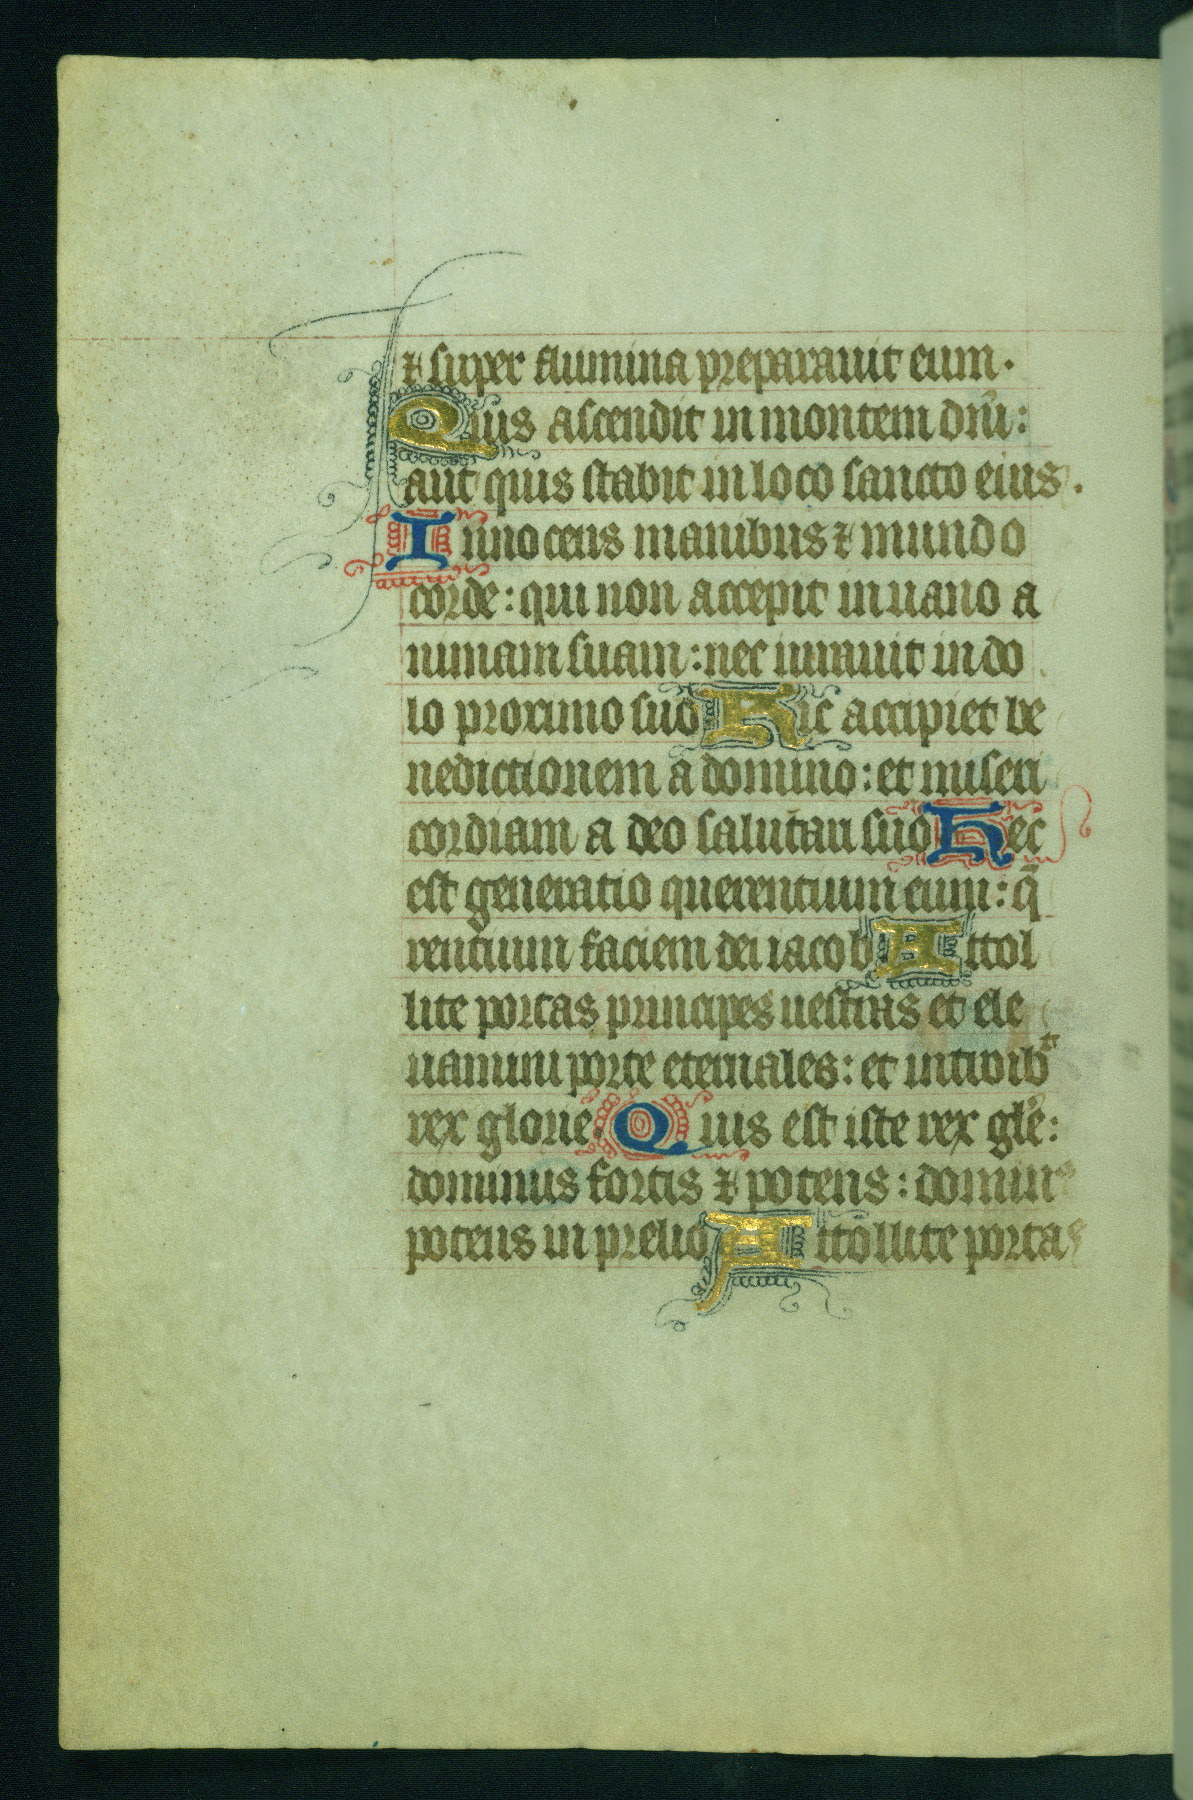 ⁊ super flumina preparauit eum.
Quis ascendit in montem dn̄i:
aut quis stabit in loco sancto eius.
Innocens manibus ⁊ mundo
corde: qui non accepit in uano a
nimam suam: nec iurauit in do
lo proximo suo Hic accipiet be
nedictionem a domino: et miseri
cordiam a deo salutari suo Hec
est generatio querentium eum: q̄
rentium faciem dei iacob Attol
lite portas principes uestras et ele
uamini porte eternales: et introibᵗ
rex glorie Quis est iste rex gl̄e:
dominus fortis ⁊ potens: dominus
potens in prelio Attollite portas